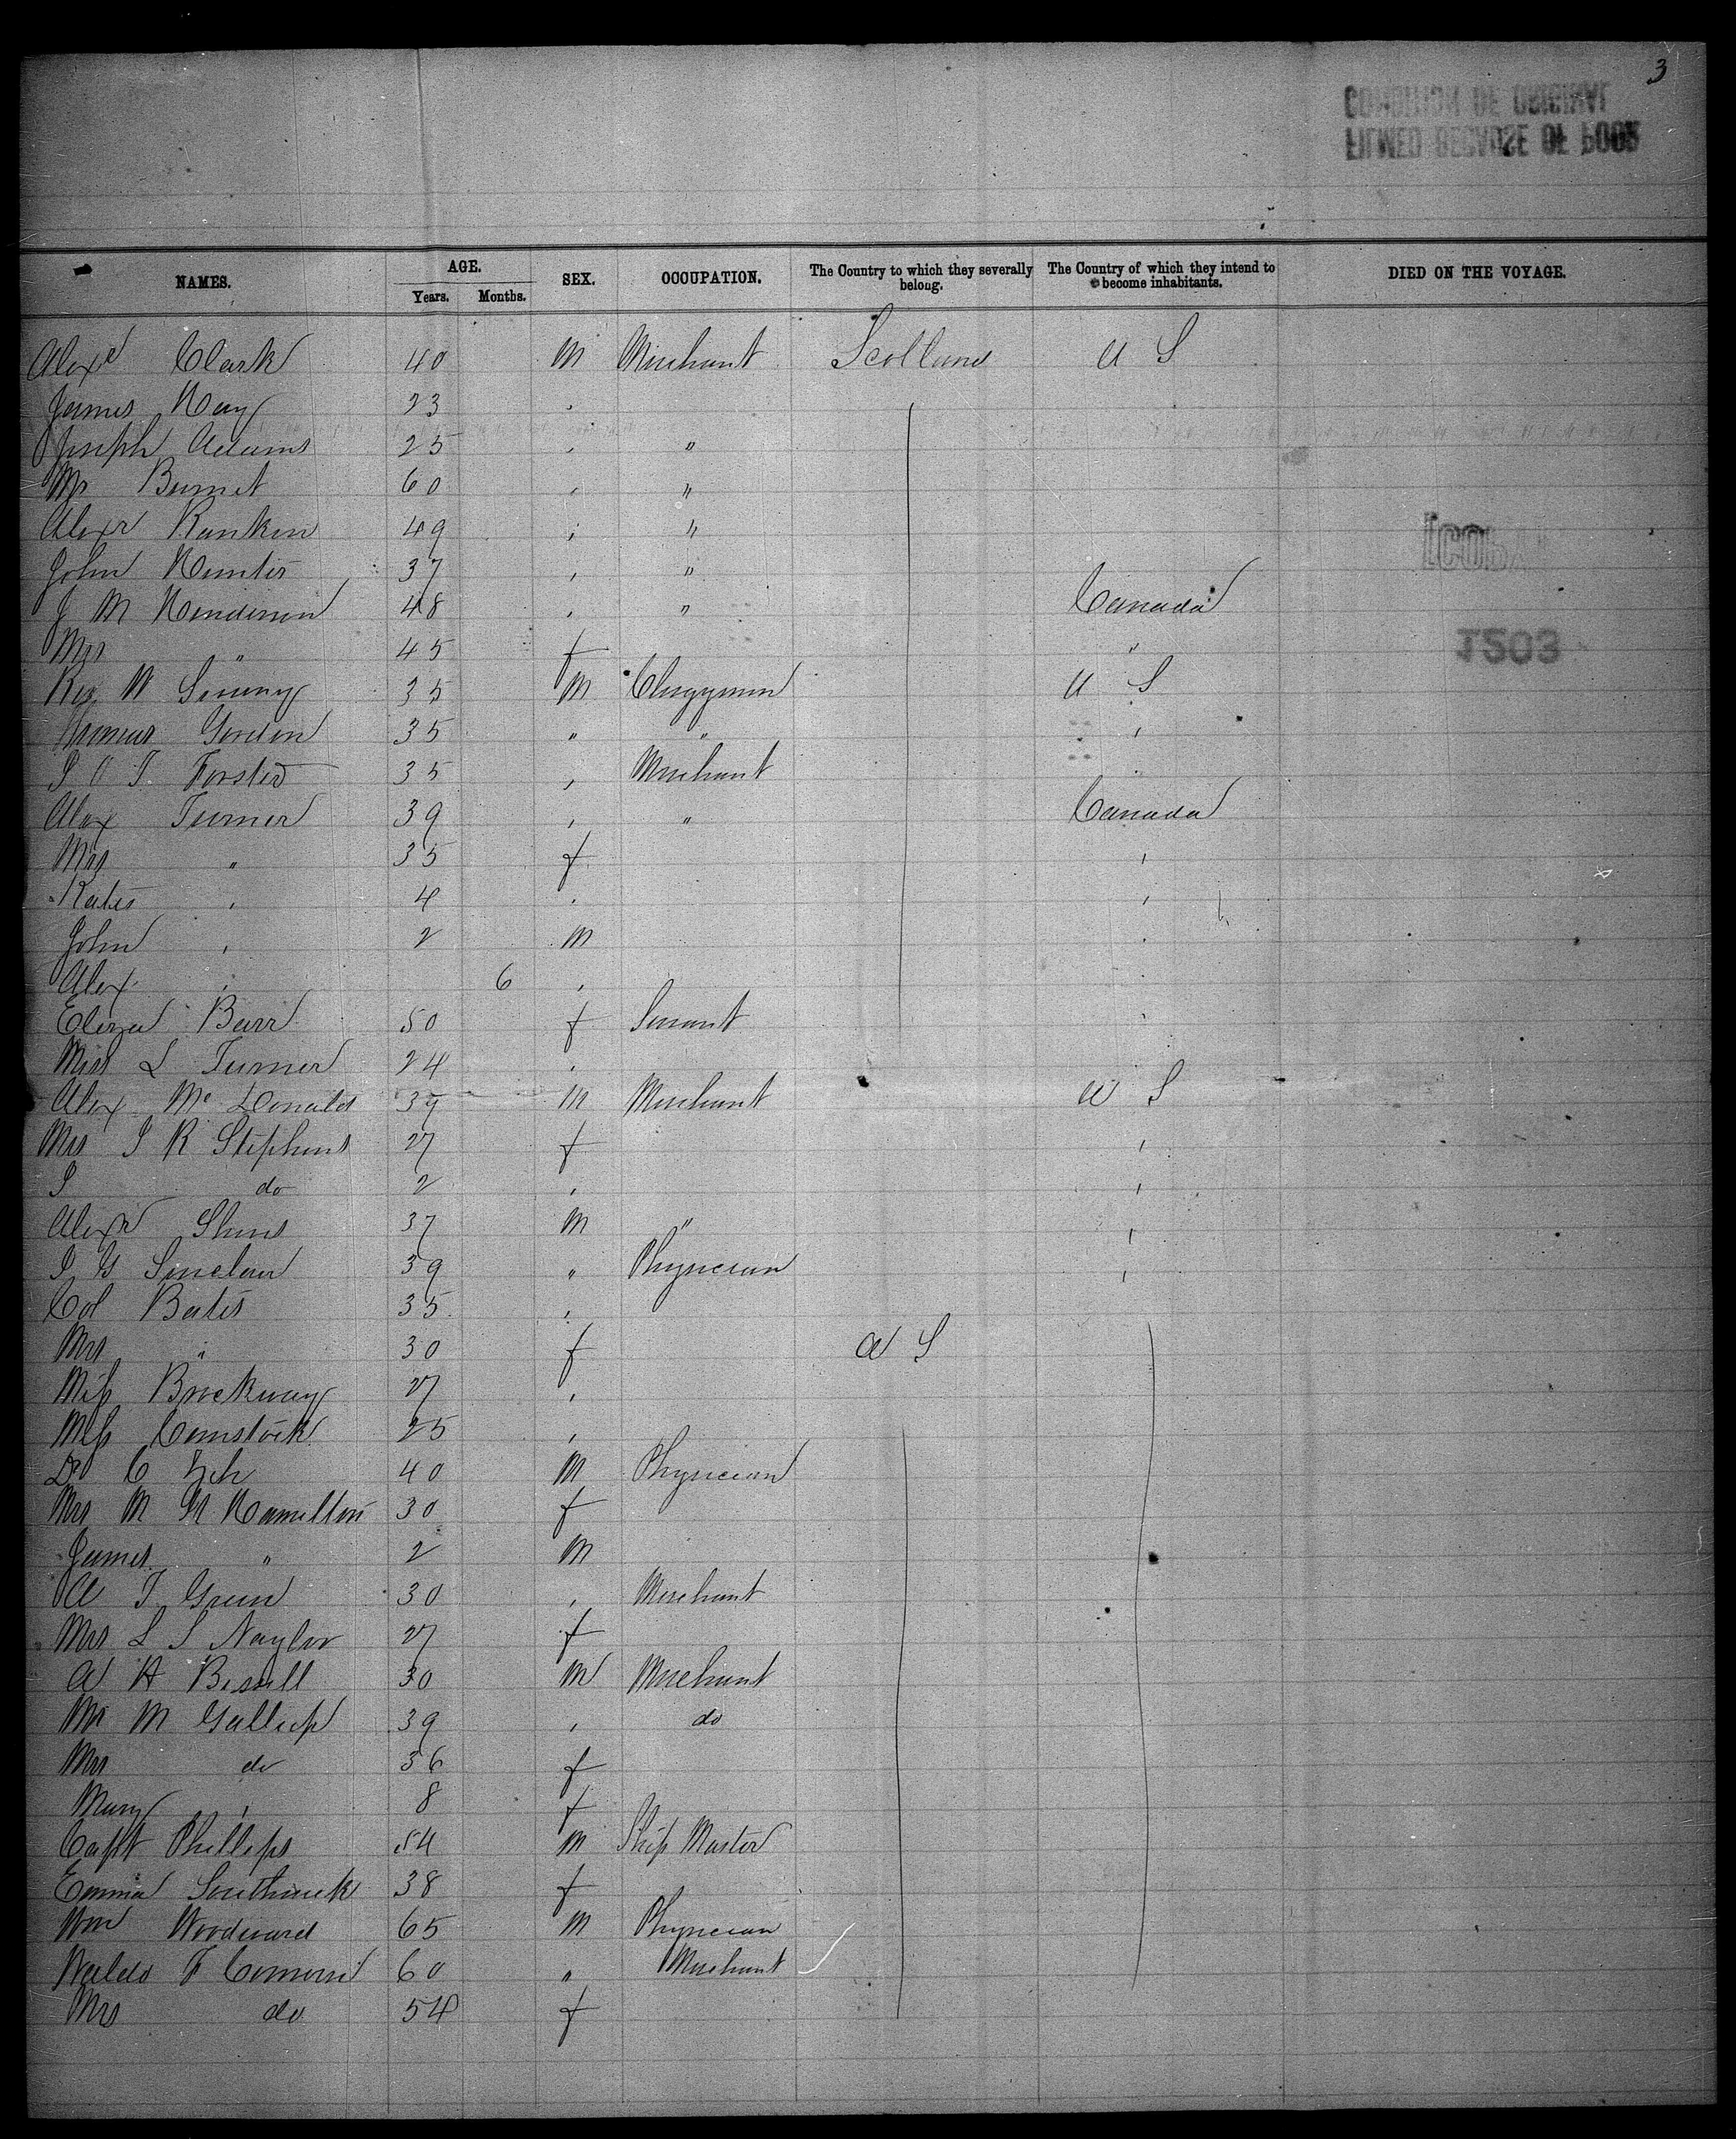 3
NAMES. AGE. Years. Months. SEX. OCCUPATION. The Country to which they severally belong. The Country of which they intend to become inhabitants. DIED ON THE VOYAGE.
Alexr Clark 40 M Merchant Scotland U S
James Hay 23
Joseph Adams 25 "
Mr Burnet 60 "
Alexr Rankin 49 "
John Hunter 37 "
J M Henderson 48 " Canada
Mrs " 45 f "
Rev W 35 M Clergyman U S
Thomas Gordon 35 " "
J O T Forster 35 Merchant
Alex Turner 39 " Canada
Mrs " 35 f
Kates 4
John 2 M
Alex 6
Eliza Barr 50 f Servant
Miss L Turner 24
Alex Mc Donald 39 M Merchant U S
Mrs J R Stephens 27 f
J do 2
Alexr Shins 37 M "
J G Sinclair 39 " Physician
Col Bates 35
Mrs " 30 f U S
Miss Brockway 27
Miss Comstock 25
Dr C 40 M Physician
Mrs M H Hamilton 30 f
James " 2 M
A T Green 30 Merchant
Mrs L S Naylor 27 f
A H Bissell 30 M Merchant
Mr M Gallup 39 do
Mrs do 36 f
Mary 8 f
Capt Phillips 54 M Ship Master
Emma Southwick 38 f
Wm Woodward 65 M Physician
Waldo F Converse 60 " Merchant
Mrs do 54 f